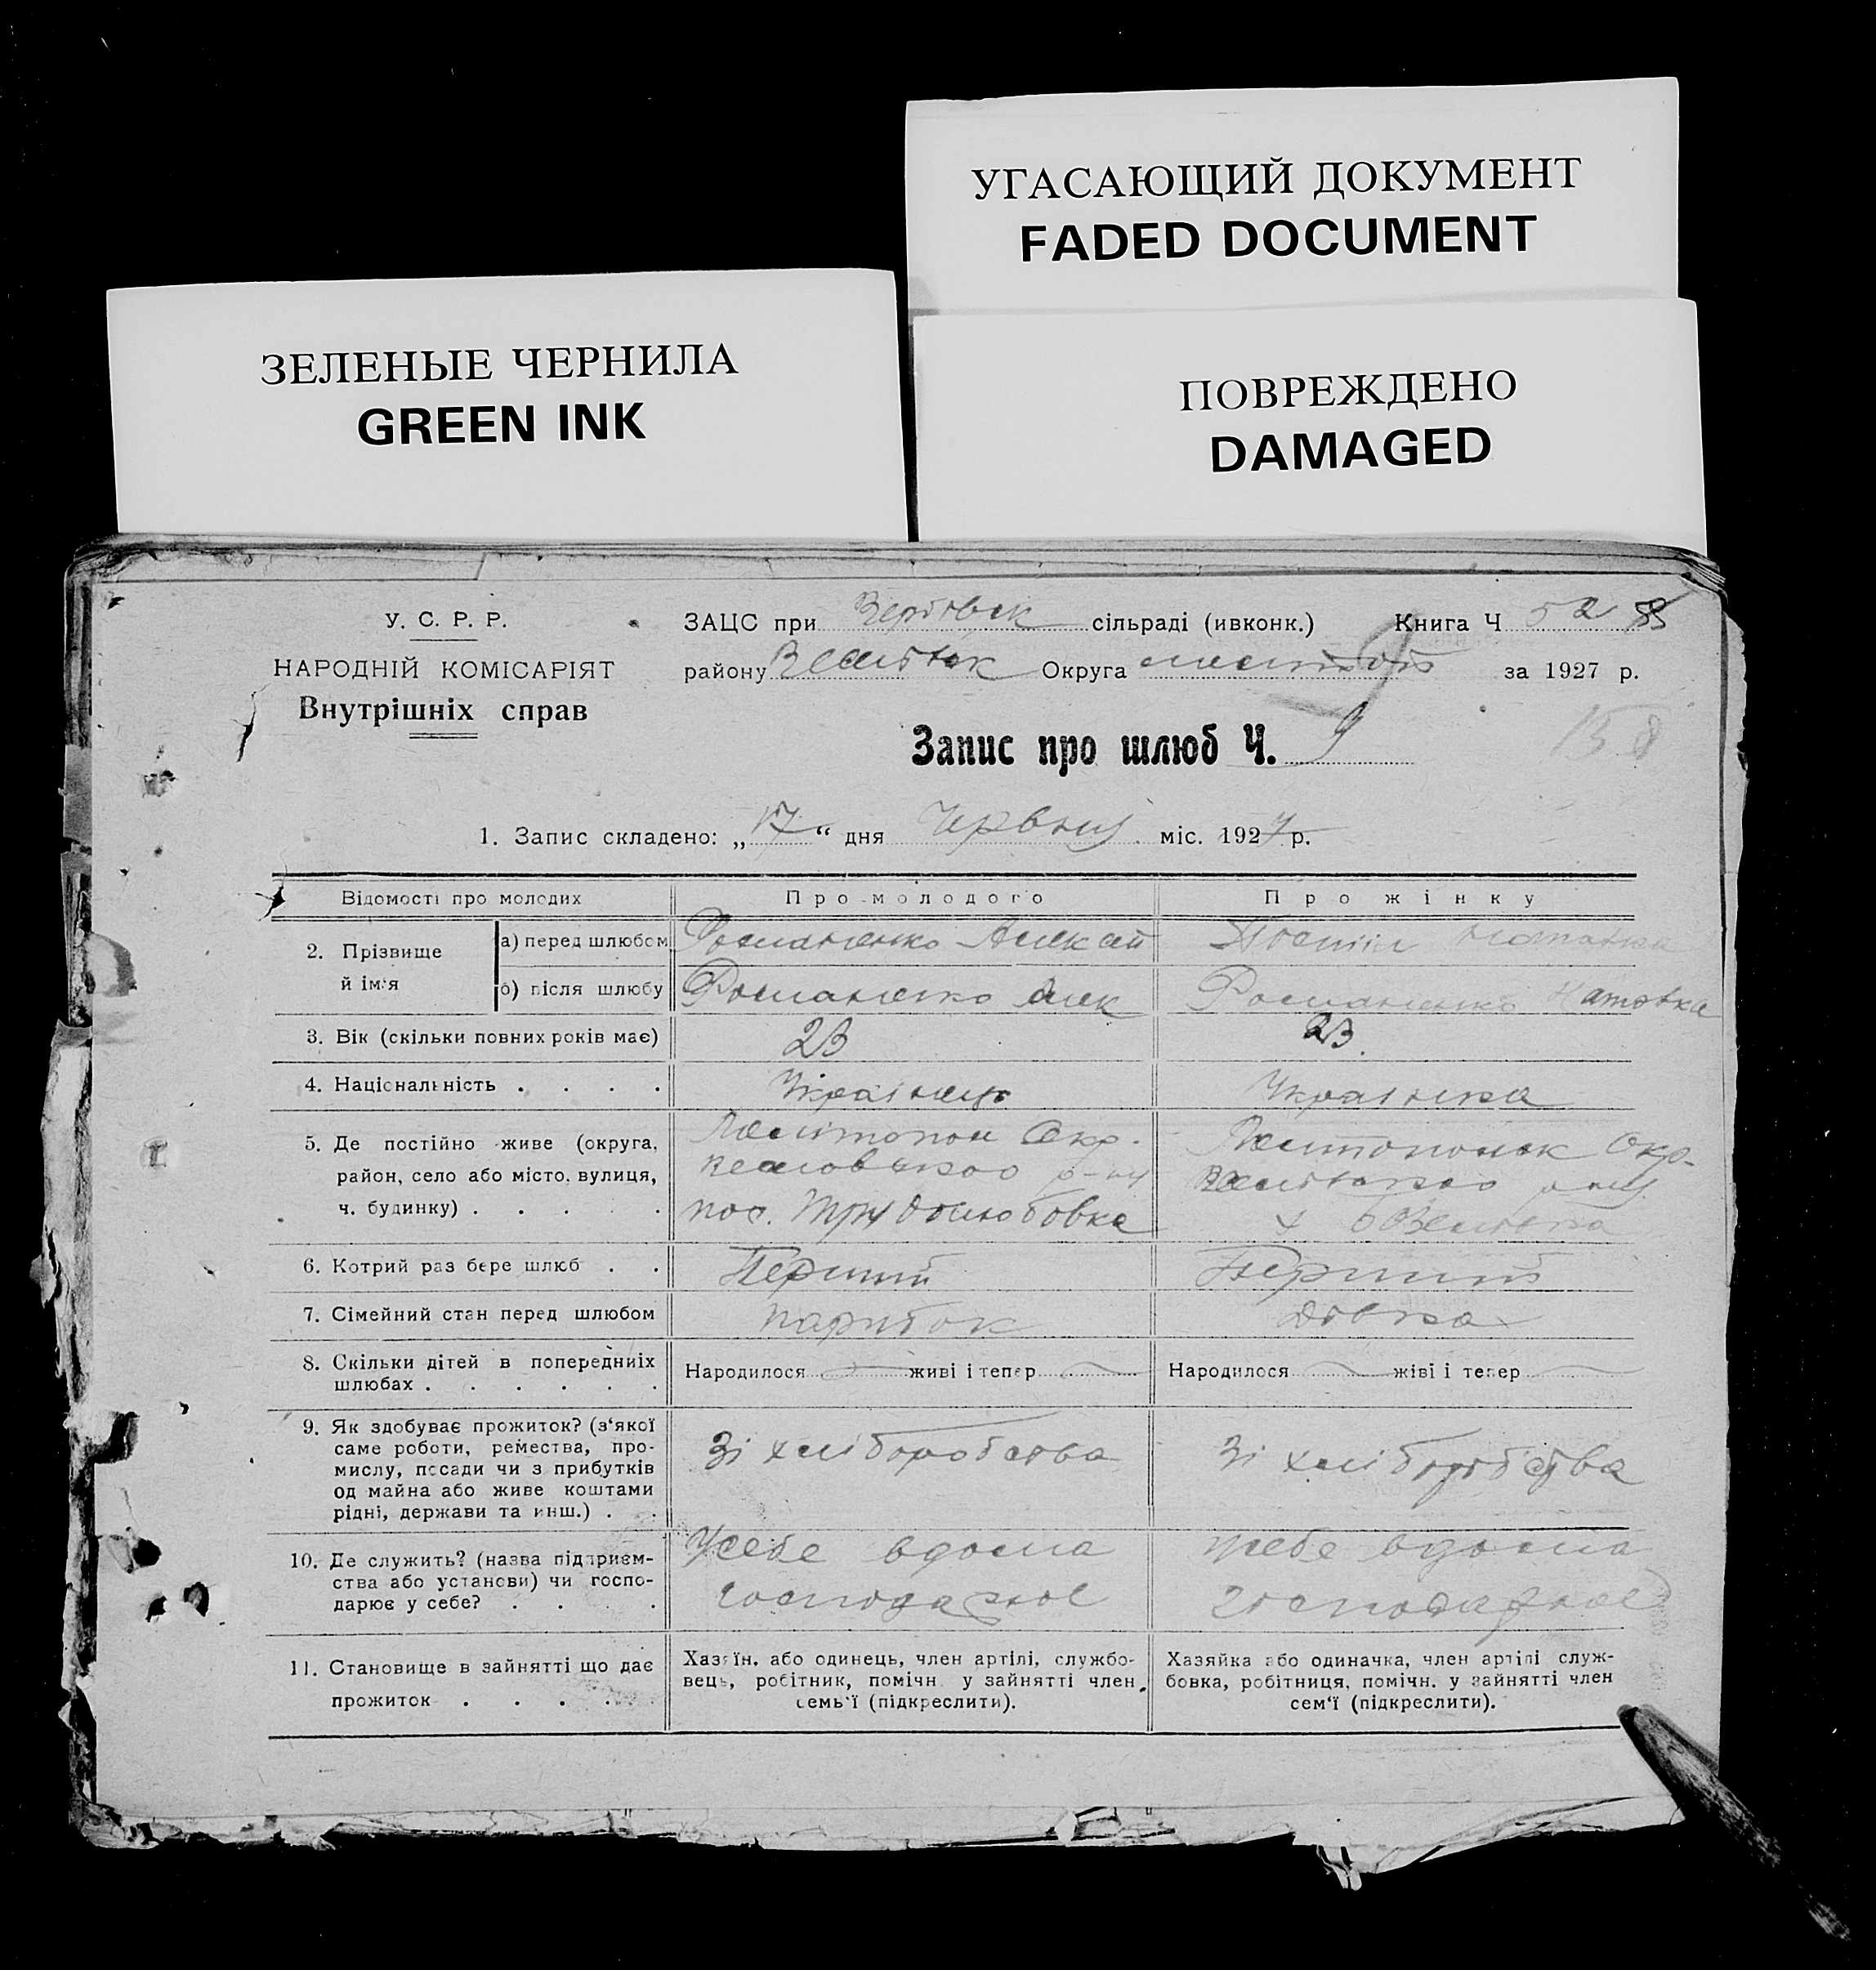 УГАСАЮЩИЙ ДОКУМЕНТ
FADED DOCUMENT
ЗЕЛЕНЫЕ ЧЕРНИЛА
GREEN INK
ПОВРЕЖДЕНО
DAMAGED
У. С. Р. Р.
НАРОДНІЙ КОМІСАРІЯТ
Внутрішніх справ
ЗАЦС при сільраді (ивконк.) Книга Ч 52
району Округа за 1927 р.
Запис про шлюб Ч. 9
158
1. Запис складено: „17“ дня Червня міс. 1927 р.
Відомості про молодих
Про молодого
Про жінку
2. Прізвище й ім'я
а) перед шлюбом
Романенко Алексій
б) після шлюбу
Романенко Алек
Романенко Наталка
3. Вік (скільки повних років має)
23
23
4. Національність . . . .
Українец
Українка
5. Де постійно живе (округа,
район, село або місто, вулиця,
ч. будинку) . . . . .
Мелітопол Окр.
р-ну
пос. Трудолюбовка
Окр.
р-ну
6. Котрий раз бере шлюб . .
Перший
Перший
7. Сімейний стан перед шлюбом
парубок
дівка
8. Скільки дітей в попередніх
шлюбах . . . . . .
Народилося живі і тепер
Народилося жіві і тепер
9. Як здобуває прожиток? (з'якої
саме роботи, ремества, про-
мислу, посади чи з прибутків
од майна або живе коштами
рідні, держави та инш.) . .
Зі хліборобства
Зі хліборобства
10. Де служить? (назва підприєм-
ства або установи) чи госпо-
дарює у себе? . . . .
У себе вдома
господарює
У себе вдома
господарює
11. Становище в зайнятті що дає
прожиток . . . . . .
Хазяїн, або одинець, член артілі, службо-
вець, робітник, помічн. у зайнятті член
семь'ї (підкреслити).
Хазяйка або одиначка, член артілі служ-
бовка, робітниця, помічн. у зайнятті член
сем'ї (підкреслити).